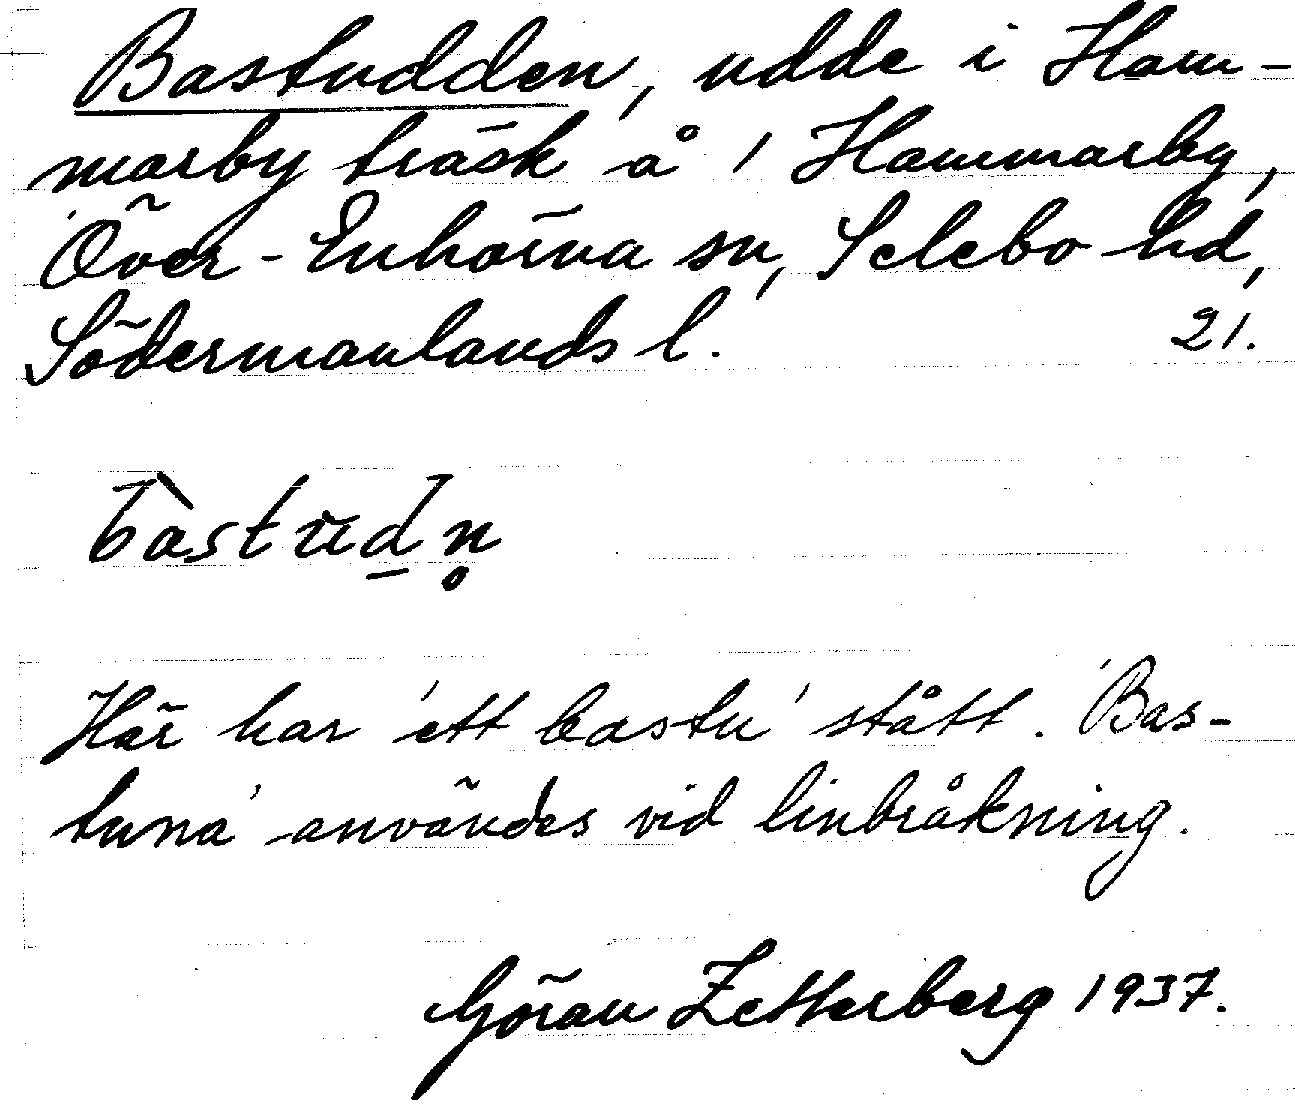 Bastudden, udde i Ham-
marby träsk å 1 Hammarby,
Över-Enhörna sn, Selebo hd,
Södermanlands l. 21.
bàstŭd̲n̥
Här har 'ett bastu' stått. 'Bas-
tuna' användes vid linbråkning.
Göran Zetterberg 1937.